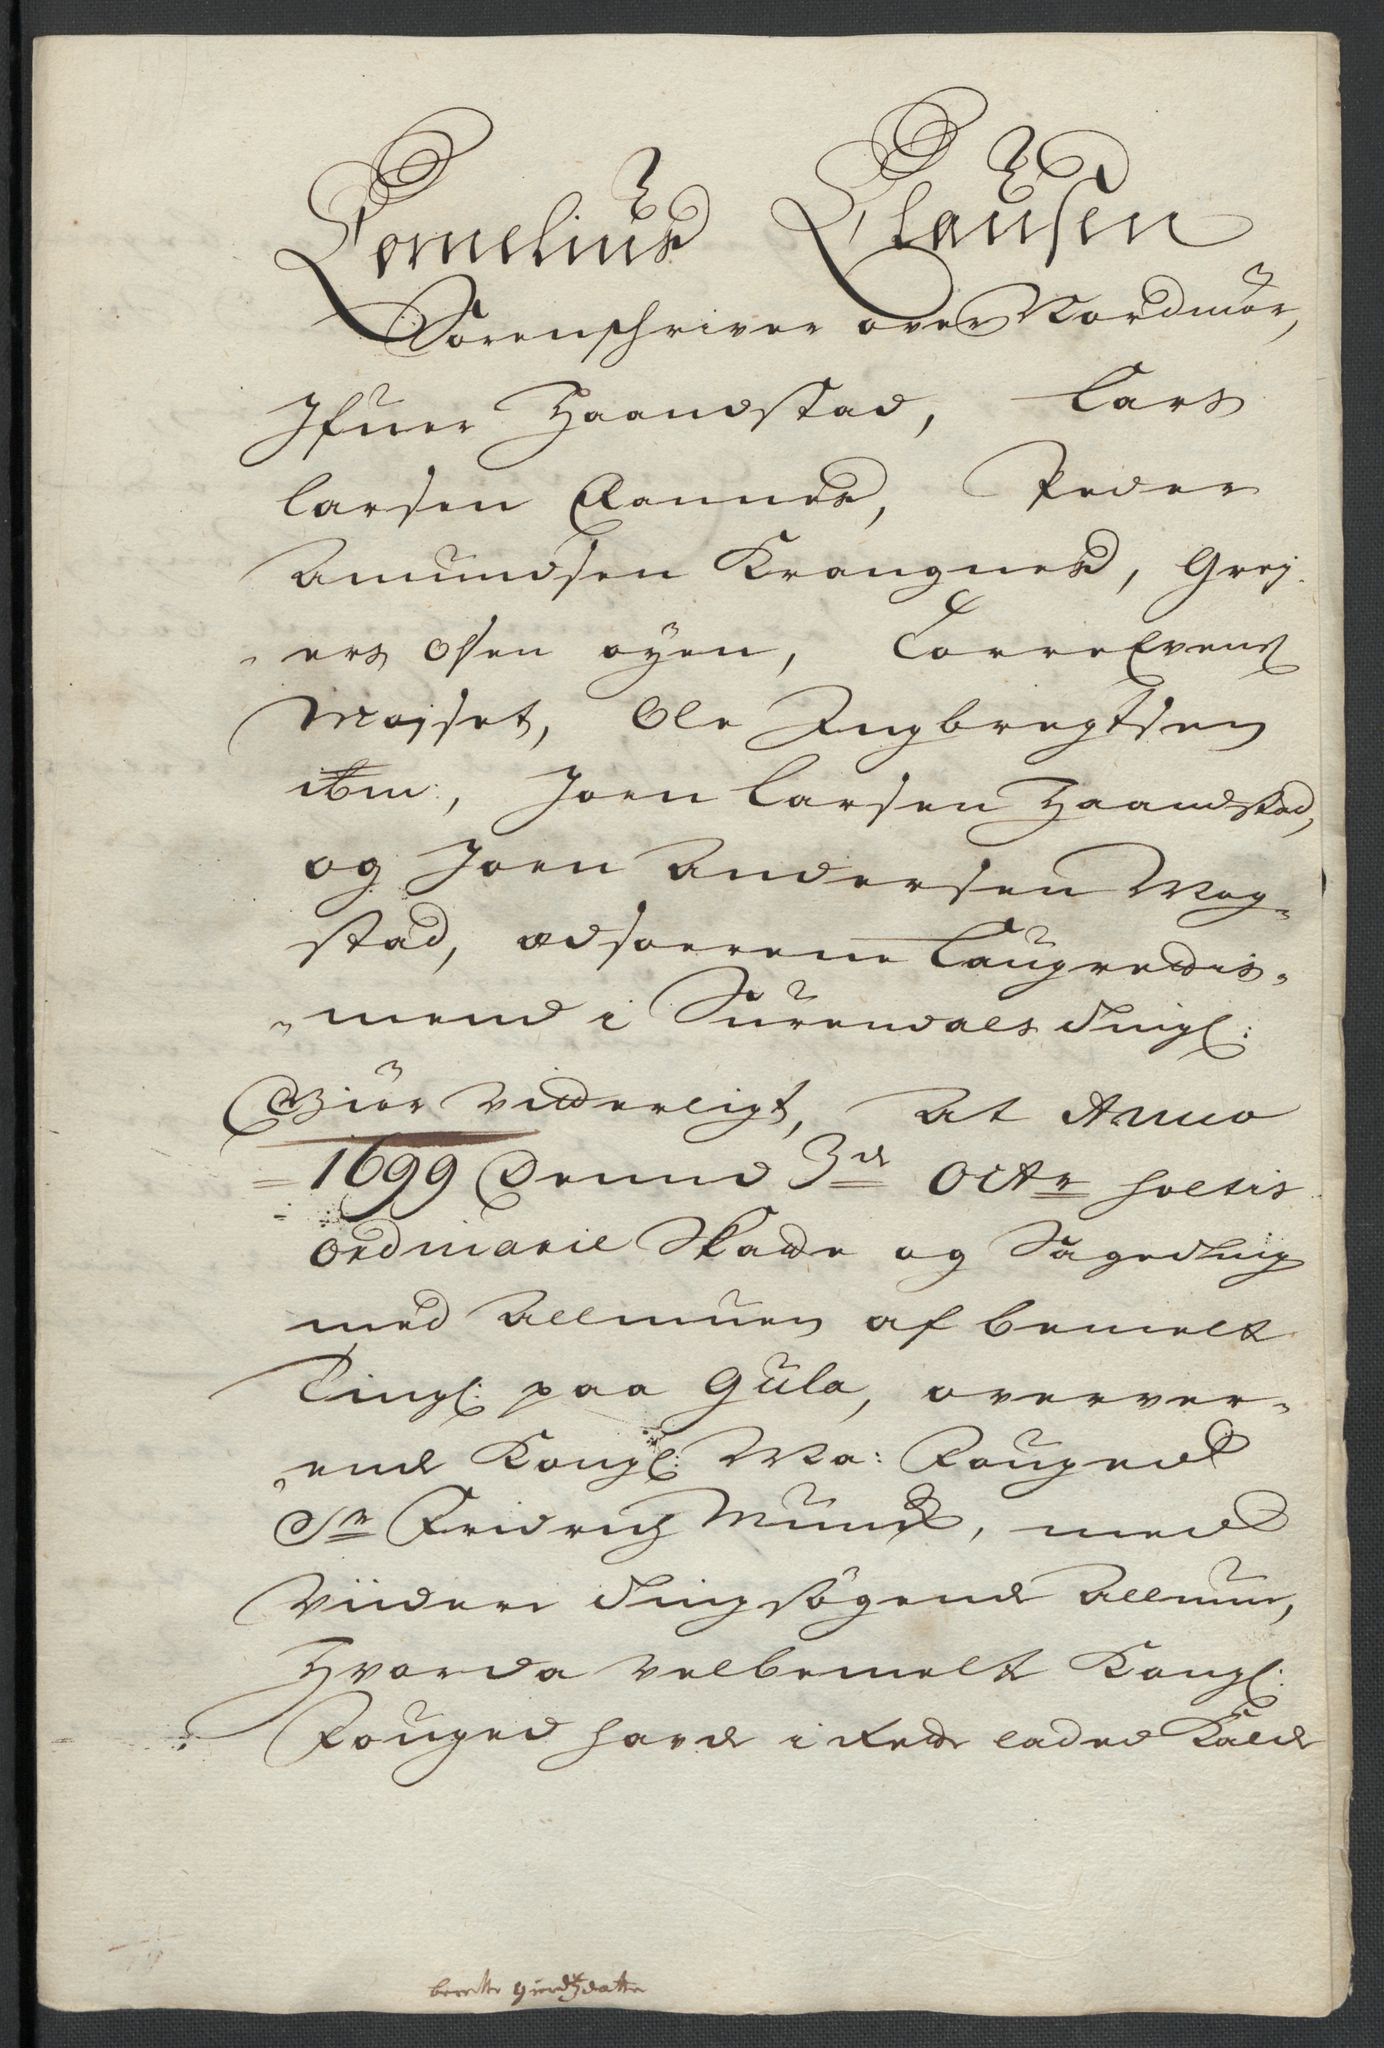 Cornelius Clausen
Sorenschriver over Nordmör,
Ifuer Haandstad, Lars
Larsen Rannes, Peder
Amundsen Krangnes, Grej-
-ers Olsen øyen, Torre Evens
Mojset, Ole Ingbregtsen
ibm:, Joen Larsen Haandstad,
og Joen Andersen Mog-
stad, Edsoerene Laugredis-
-mend i Surendals Tingl:
Giör vitterligt, At Anno
1699 Dennd 3de Octr holtis
ordinarie Skatte og Sageting
med Allmuen af bemelt
Tingl: paa Gula, overver-
-end Kongl: Ma: Fouged
Sr Fridrich Munck, med
viidere Tingsögende Allmue,
Hvorda velbemelt Kongl:
Fouged hafde i Rette laded Kalde